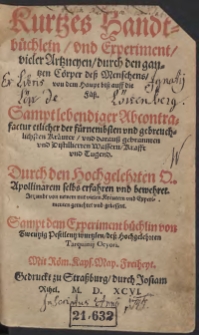 Kurtzes Handt-
büchlein / vnd Experiment /
vieler Artzneyen / durch den gan-
tzen Cörper deß Menschens
von dem Haupt biß auff die
Füß.
Ex Libris Ignatij
Löw de Löwenberg.
Sampt lebendiger Abcontra-
factur etlicher der fürnembsten vnd gebreuch-
lichsten Kräuter / vnd darauß gebrannten
vnd Distillierten Wassern / Krafft
vnd Tugend.
Durch den Hochgelehrten Q.
Apollinarem selbs erfahren vnd beweheret.
Jetzundt von newem mit vielen
gemehret vnd gebessert.
Sampt dem Experiment büchlin von
Zwentzig Pestilentz wurtzlen / deß Hochgelehrten
Tarquinij Ocyori.
Mit Röm. Kays. May. Freiheyt.
Gedruckt zu Straßburg / durch Josiam
Rihel. M. D. XCVI.
21.632